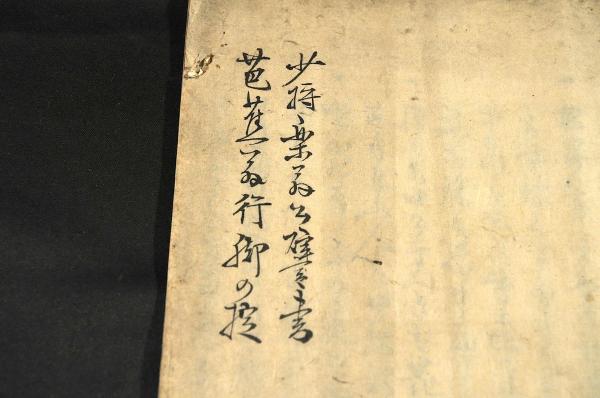 少将楽翁公壁書
芭蕉翁行脚の掟